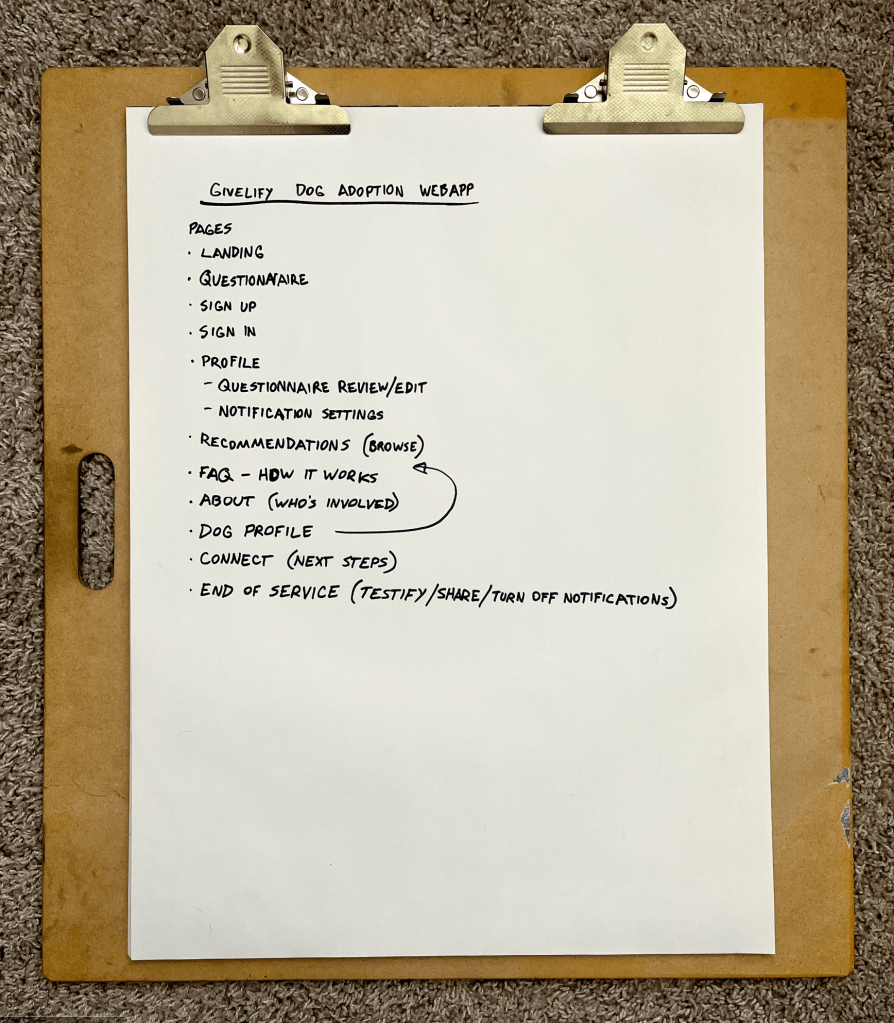 GIVELIFY DOG ADOPTION WEBAPP
PAGES
· LANDING
· QUESTIONAIRE
· SIGN UP
· SIGN IN
· PROFILE
- QUESTIONNAIRE REVIEW/EDIT
- NOTIFICATION SETTINGS
· RECOMMENDATIONS (BROWSE)
· FAQ - HOW IT WORKS
· ABOUT (WHO'S INVOLVED)
· DOG PROFILE
· CONNECT (NEXT STEPS)
· END OF SERVICE (TESTIFY/SHARE/TURN OFF NOTIFICATIONS)